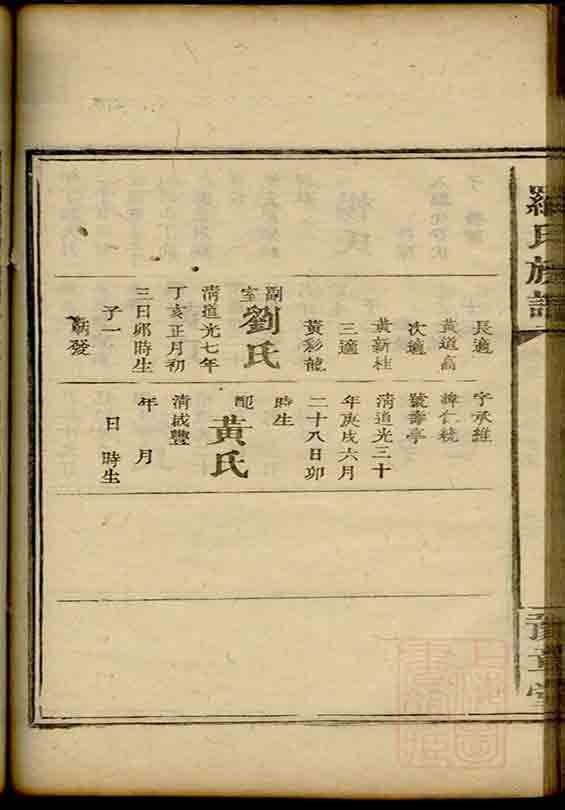 羅氏族譜
長適
黃道高
次適
黃新桂
三適
黃彩龍
副室
劉氏
清道光七年
丁亥正月初
三日卯時生
子一
朝發
字承維
諱仁統
號壽亭
清道光三十
年庚戌六月
二十八日卯
時生
配
黃氏
清咸豐
年 月
日 時生
豫章堂